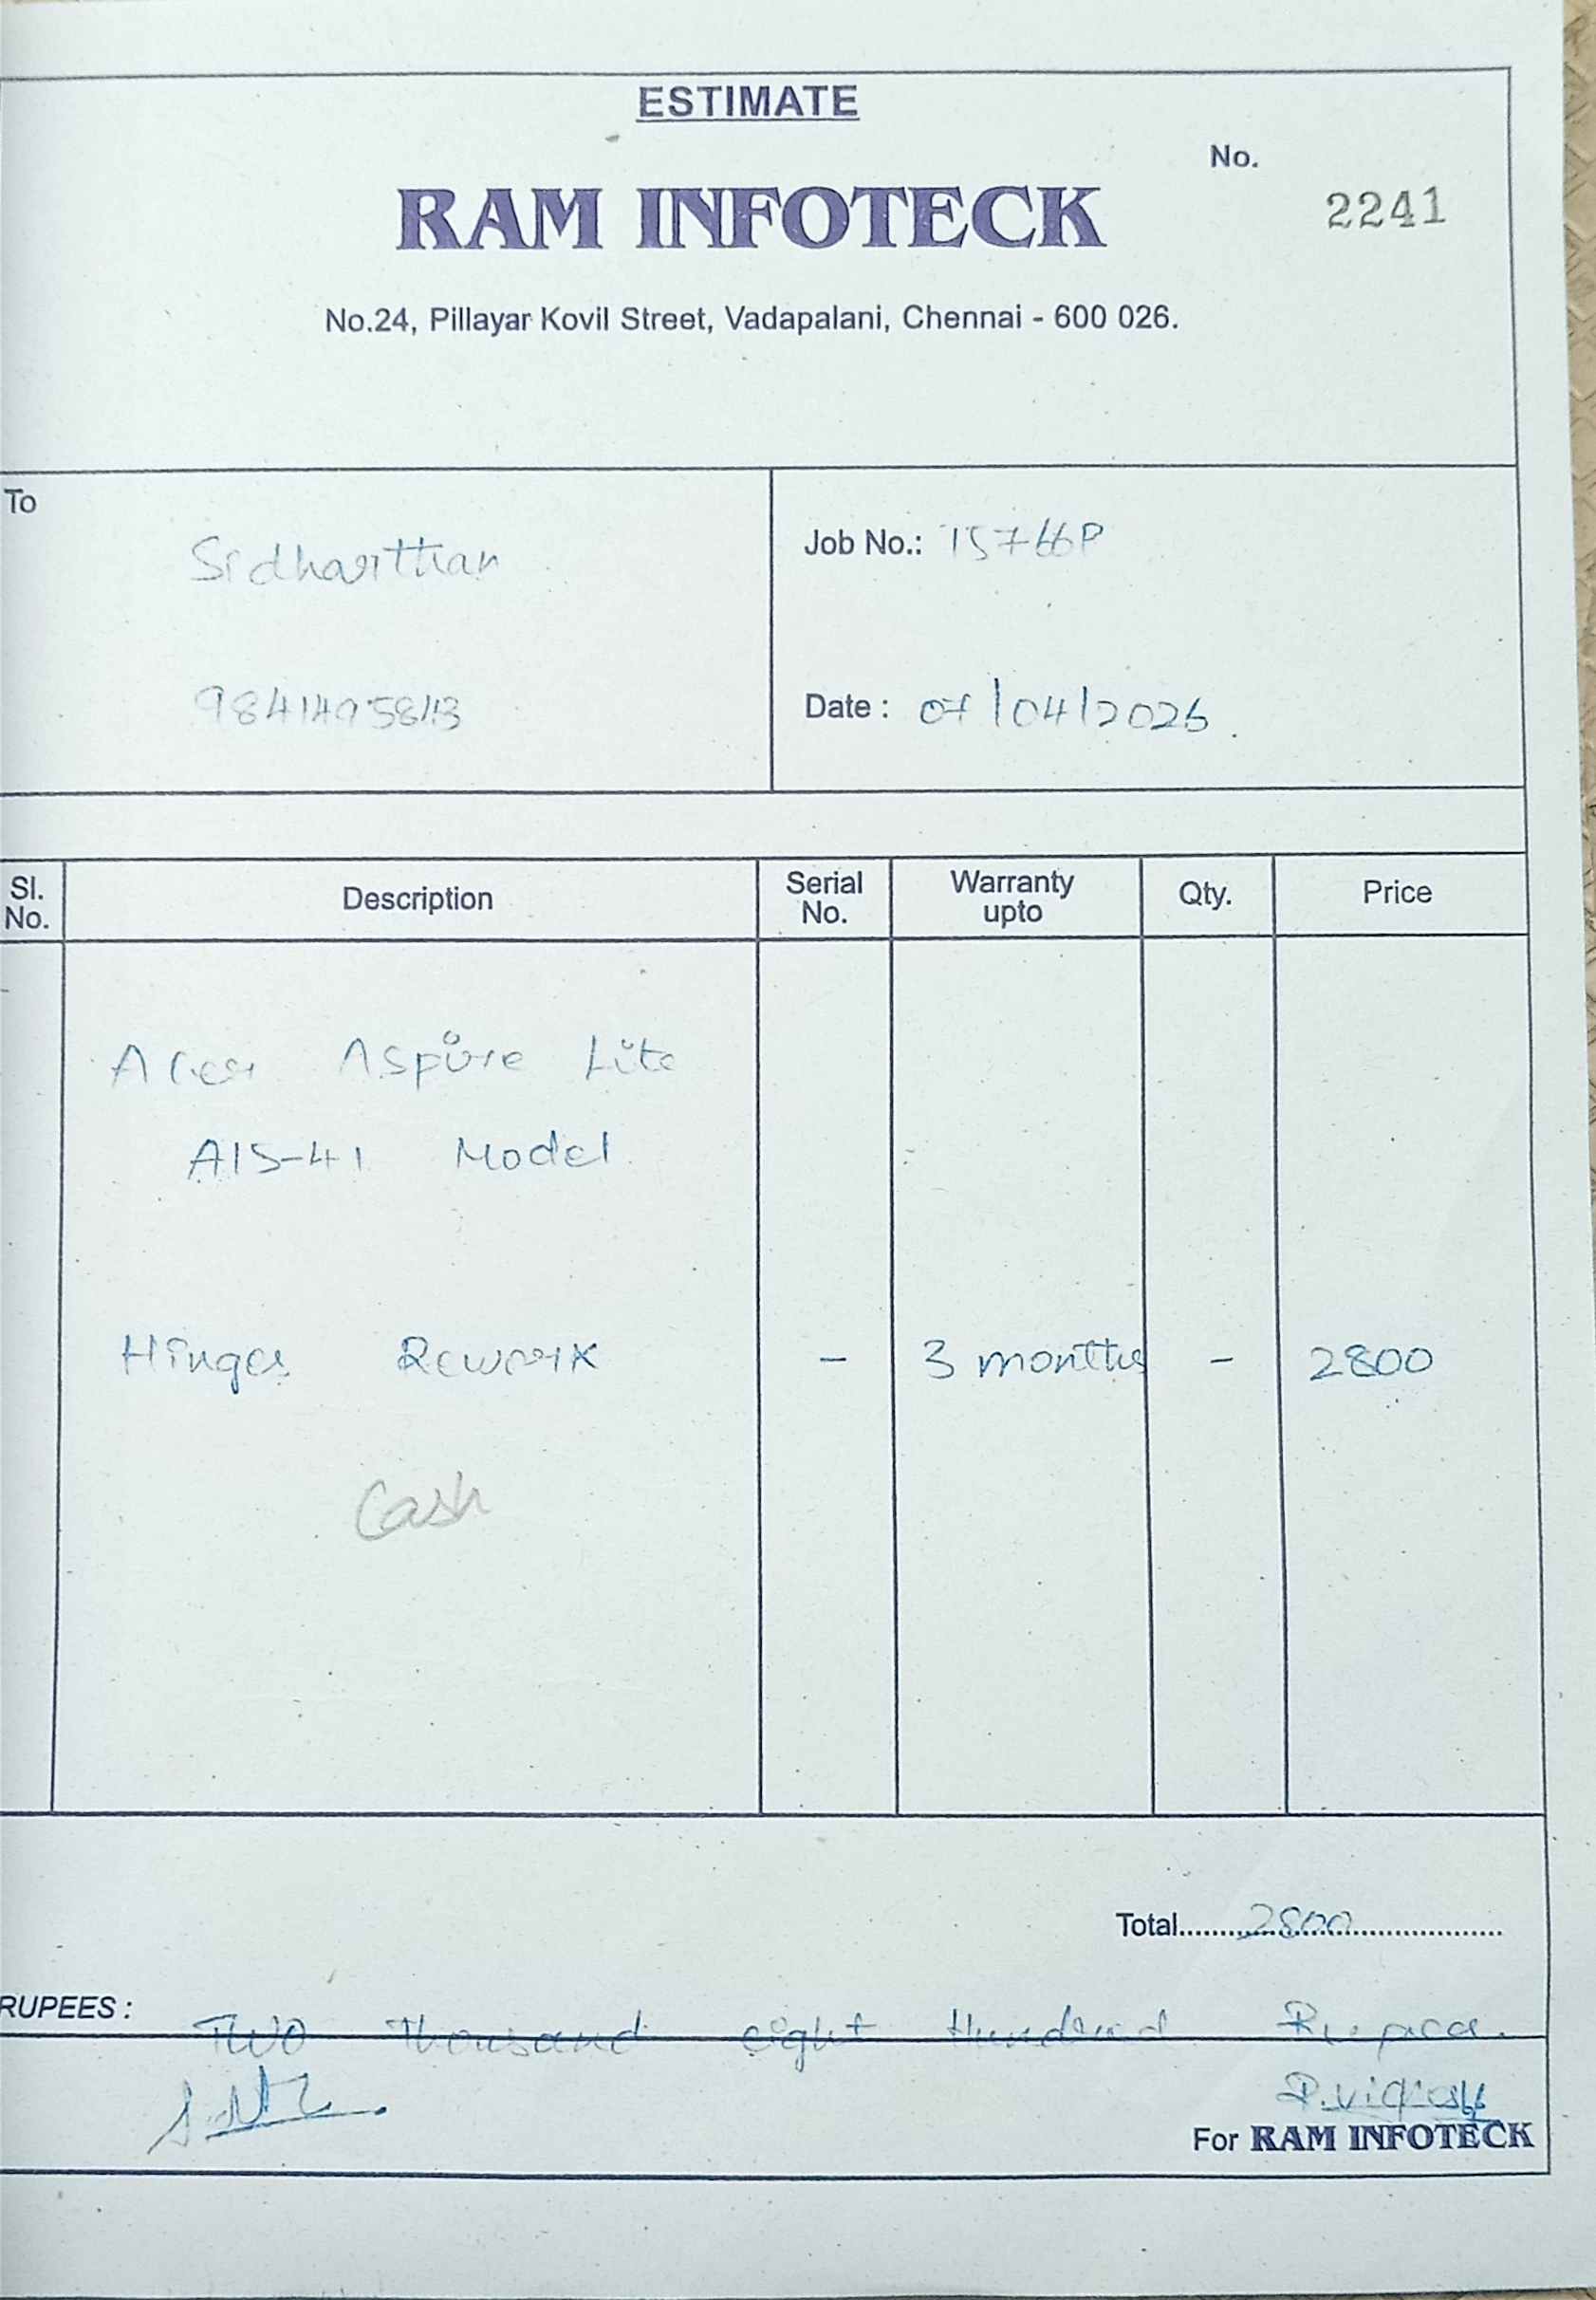 ESTIMATE
No.
2241
RAM INFOTECK
No.24, Pillayar Kovil Street, Vadapalani, Chennai - 600 026.
To
Sidharthan
Job No.: 15766P
Date : 07/04/2026
Sl. No. Description Serial No. Warranty upto Qty. Price
Acer Aspire Lite
A15-41 Model
Hinges Rework - 3 months - 2800
Cash
Total 2800
RUPEES : Two Thousand eight Hundred
For RAM INFOTECK